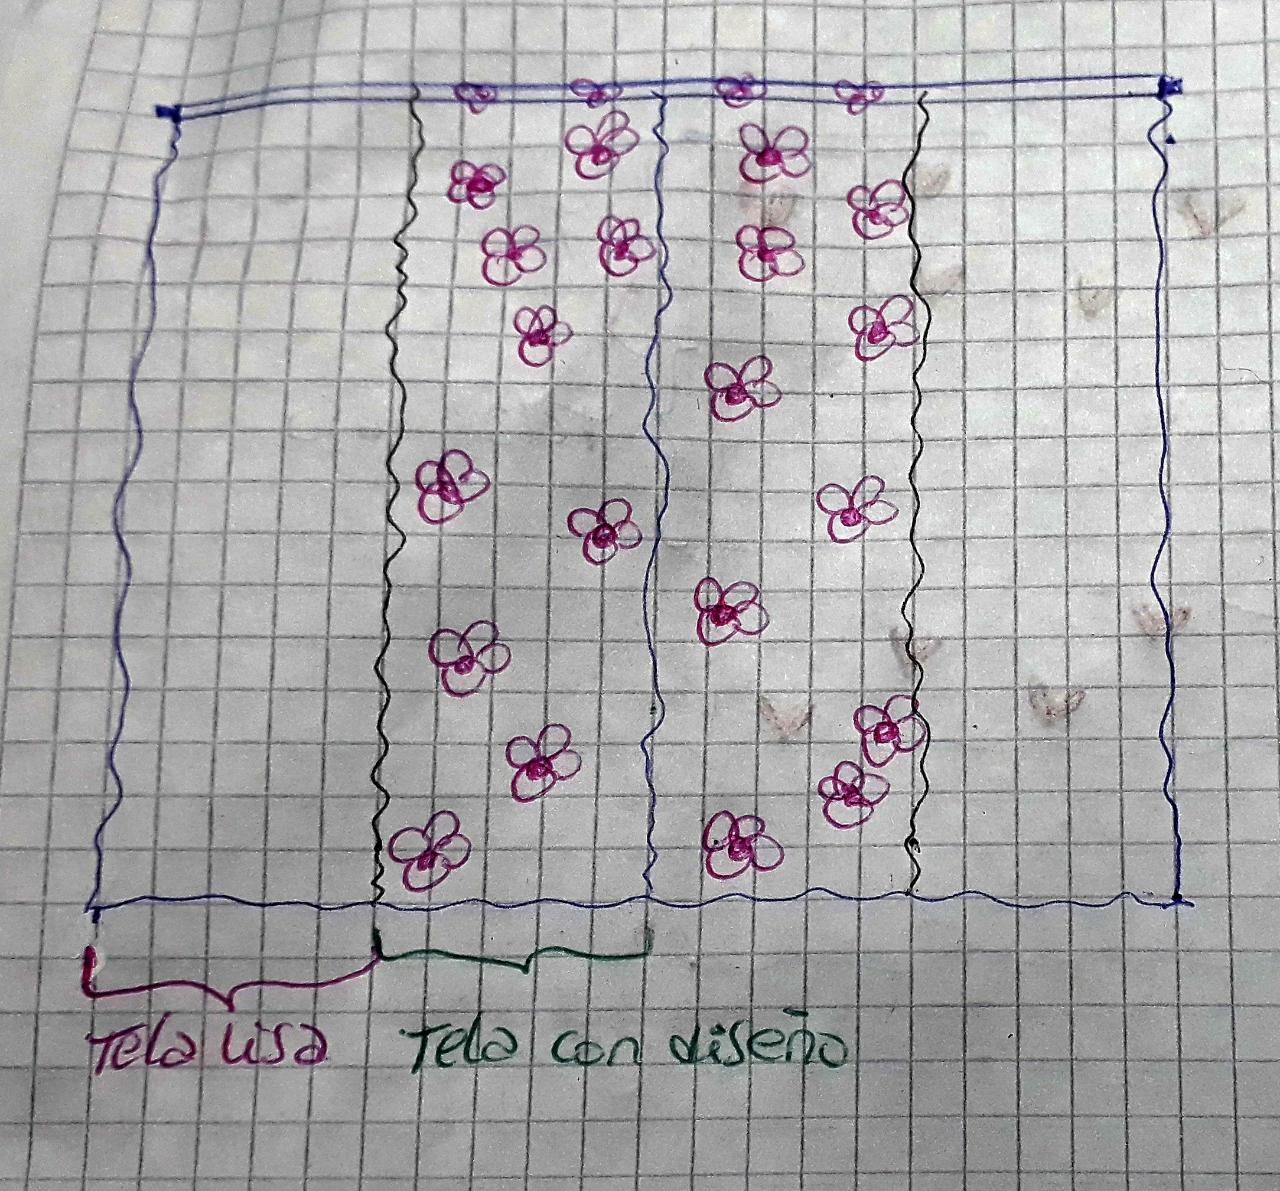 Tela lisa Tela con diseño